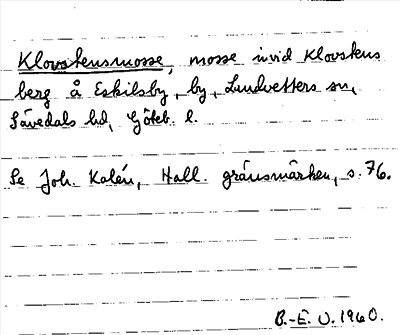 Klovstensmosse, mosse invid Klovstens
berg å Eskilsby, by, Lundvetters sn,
Sävedals hd, Göteb. l.
Se Joh. Kalén, Hall. gränsmärken, s. 76.
B.-E. U. 1960.